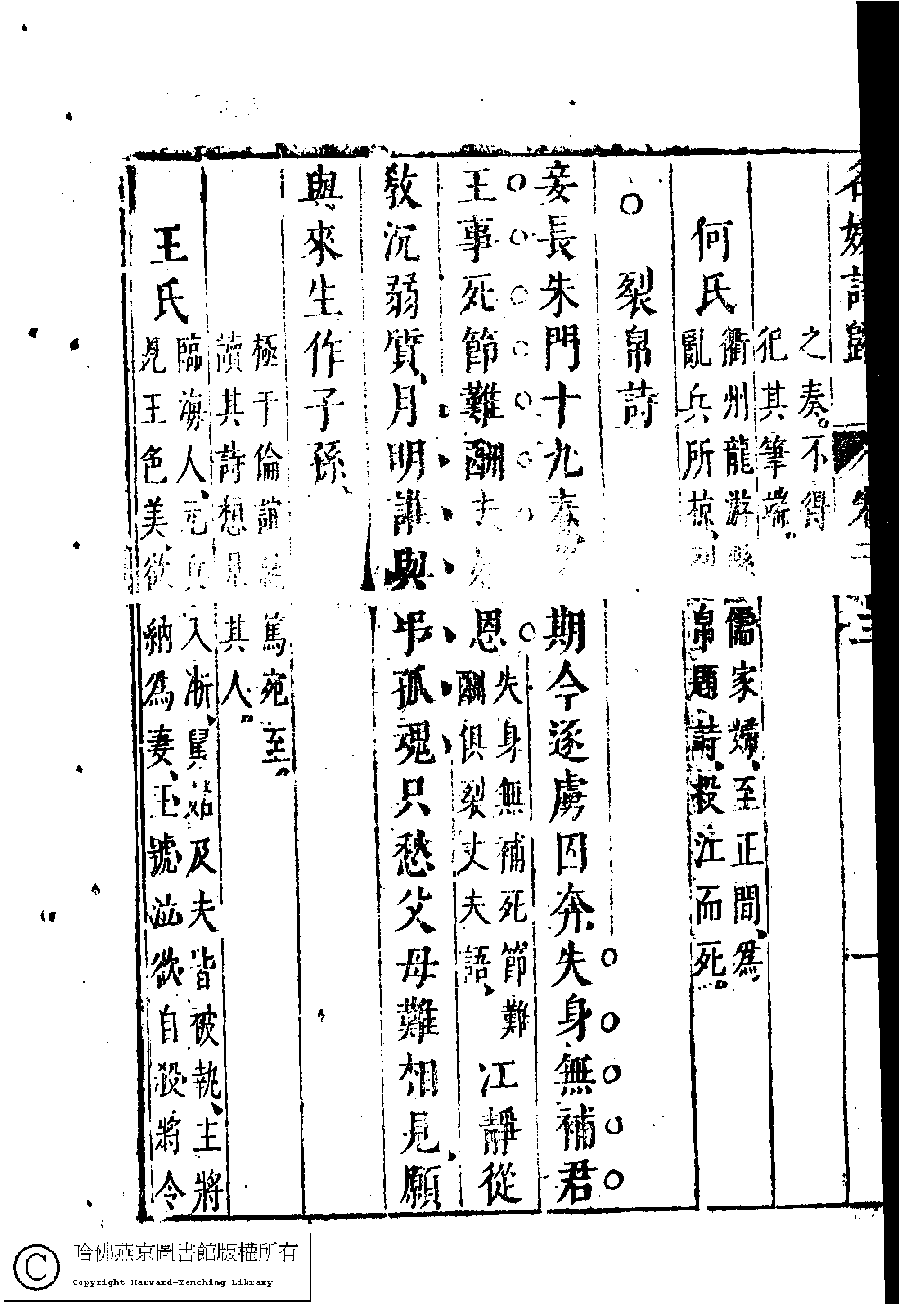 名媛詩歸　卷二　三
之奏。不得
犯其筆端。
何氏
衢州龍游縣儒家婦、至正間、爲
亂兵所掠、裂帛題詩、投江而死。
○　裂帛詩
妾長朱門十九春　期今逐虜囚奔、失身無補君
王事死節難酬　恩
失身無補死節難
酬俱裂丈夫語、
江靜從
教沉弱質、月明誰與弔孤魂只愁父母難相見、願
與來生作子孫、
極于倫　篤宛至。
讀其詩想見其人。
王氏
臨海人、元兵入浙、舅姑及夫皆被執、主將
見王色美、欲納爲妻、王號泣欲自殺、將令
哈佛燕京圖書館版權所有
Copyright Harvard-Yenching Library